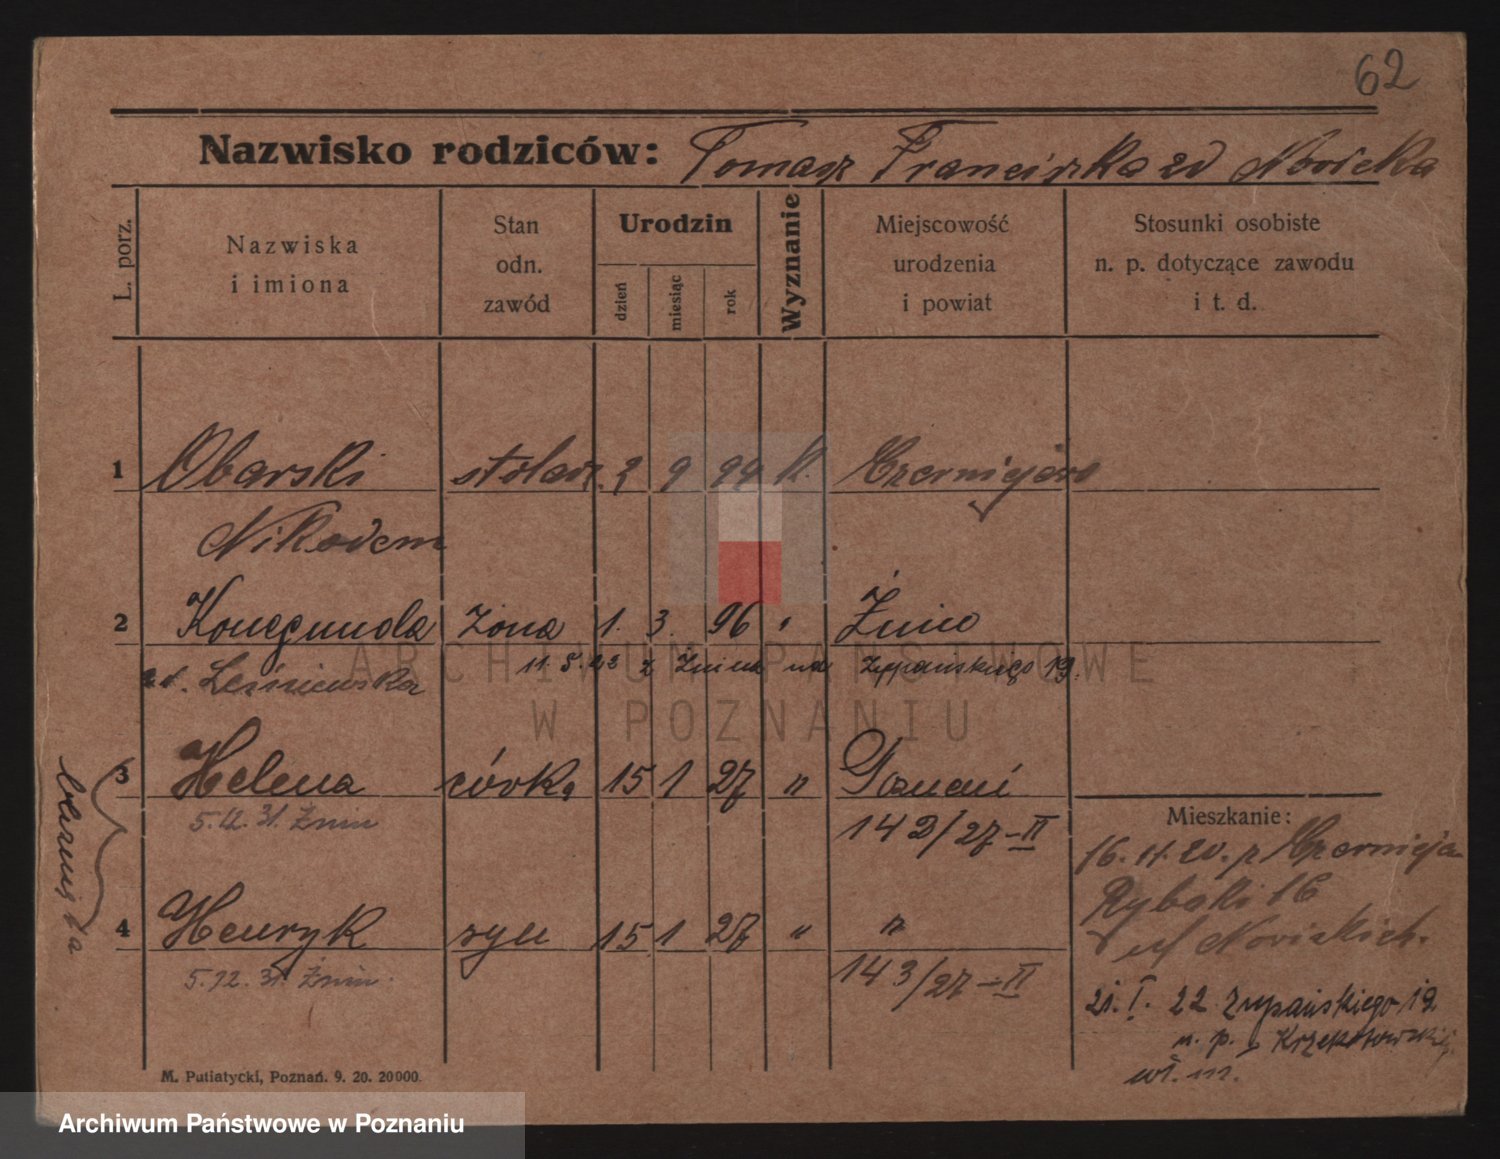 62
Nazwisko rodziców: Tomasz Franciszka zd Nowicka
L. porz.
Nazwiska
i imiona
Stan
odn.
zawód
Urodzin
dzień
miesiąc
rok
Wyznanie
Miejscowość
urodzenia
i powiat
Stosunki osobiste
n. p. dotyczące zawodu
i t. d.
1 Obarski stolarz 2 9 99 K. Czerniejewo
Nikodem
2 Konegunda żona 1. 3. 96 " Żnin
zd. Leśniewska
11.5.23 z Żnina na Zupańskiego 19.
3 Helena córka 15 1 27 " Poznań
5.12.31. Żnin
142/27-II
4 Henryk syn 15 1 27 " "
5.12.31. Żnin.
143/27-II
bliźnięta
Mieszkanie:
16.11.20. z Czerniejewa
Rybaki 16
u Nowickich.
21.I.22 Zupańskiego 19
n. p. Krzekotowskiej
wł. m.
M. Putiatycki, Poznań. 9. 20. 20000.
ARCHIWUM PAŃSTWOWE
W POZNANIU
Archiwum Państwowe w Poznaniu